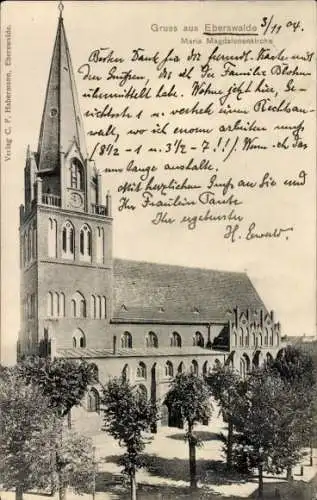 Gruss aus Eberswalde
3/11 04.
Maria Magdalenenkirche
Verlag C. F. Habermann, Eberswalde.
Besten Dank für die herzl. Karte mit
den Grüßen, die ich der Familie Blohm
übermittelt habe. Wohne jetzt hier, Ge-
richtsstr. 1 u. verkehre beim Rechtsan-
walt, wo ich enorm arbeiten muß
(8½-1 u. 3½-7 !!). Wenn ich das
nur lange aushalte.
Mit herzlichen Gruß an Sie und
Ihr Fräulein Tante
Ihr ergebenster
H. Ewald.